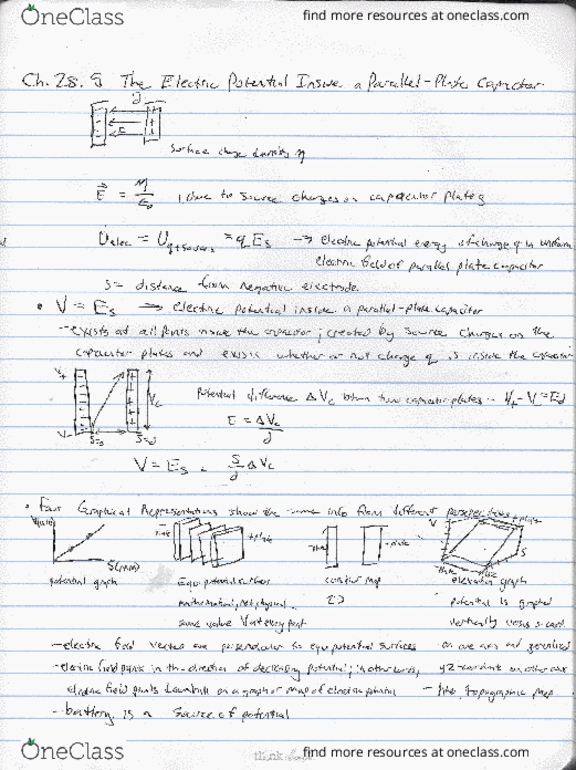 OneClass
find more resources at oneclass.com
Ch. 28.5 The Electric Potential Inside a Parallel-Plate Capacitor
d
E
Surface charge density η
E = η/ε₀ , due to source charges on capacitor plates
Uelec = Uq+sources = qEs → electric potential energy of charge q in uniform
electric field of parallel plate capacitor
s = distance from negative electrode
• V = Es → electric potential inside a parallel-plate capacitor
- exists at all points inside the capacitor; created by source charges on the
capacitor plates and exists whether or not charge q is inside the capacitor
V+
Vc
V-
s=0
s=d
Potential difference ΔVc btwn two capacitor plates V+ - V- = Ed
E = ΔVc/d
V = Es = s/d ΔVc
• Four Graphical Representations show the same info from different perspectives
s(mm)
-plate
+plate
V
+plate
s
potential graph
Equipotential surfaces
contour map
elevation graph
mathematical, not physical
2D
potential is graphed
same value V at every point
vertically versus s-coord
- electric field vectors are perpendicular to equipotential surfaces
on one axis and generalized
- electric field points in the direction of decreasing potential; in other words,
yz-coordinate on other axis
electric field points downhill on a graph or map of electric potential
- like topographic map
- battery is a source of potential
OneClass
find more resources at oneclass.com